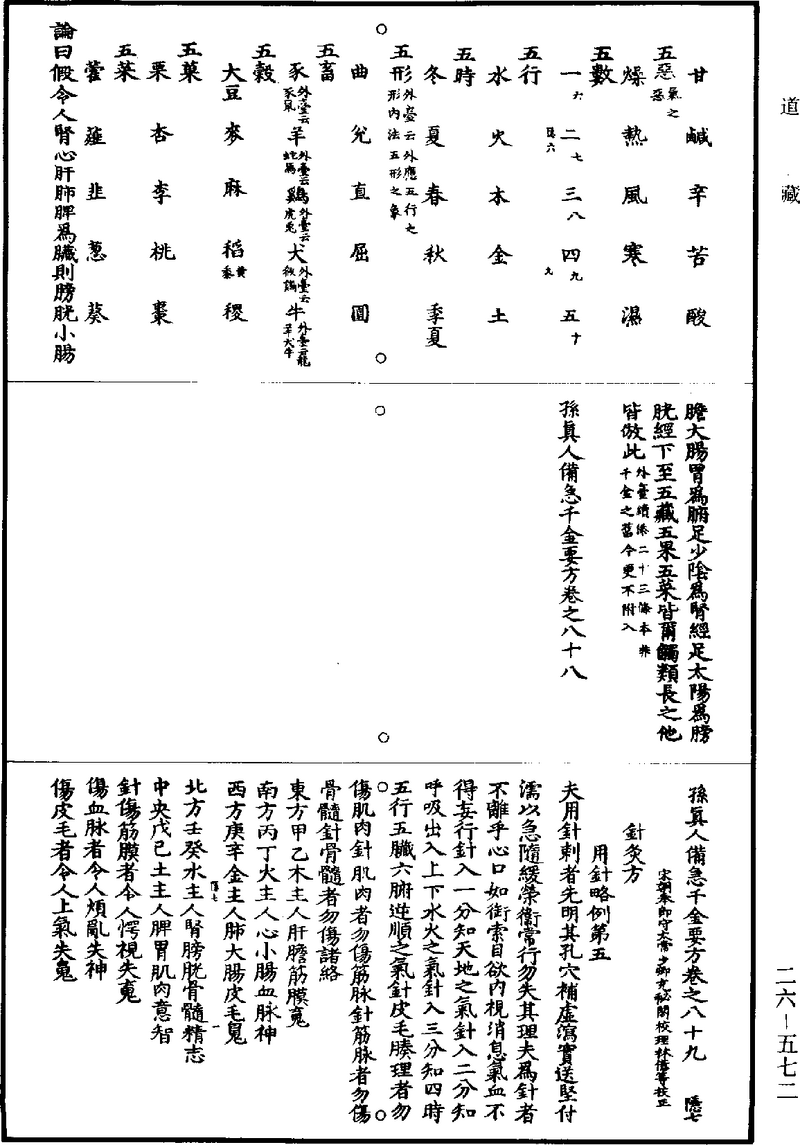 道藏
甘 鹹 辛 苦 酸
五惡氣之惡
燥 熱 風 寒 濕
五數
一六 二七 三八 四九 五十
五行
水 火 木 金 土
五時
冬 夏 春 秋 季夏
五形外臺云外應五行之形內法五形之象
曲 兊 直 屈 圓
五畜
豕外臺云豕鼠 羊外臺云蛇馬 鷄外臺云虎兎 犬外臺云猴鷄 牛外臺云龍羊犬牛
五穀
大豆 麥 麻 稻黃黍 稷
五菓
栗 杏 李 桃 棗
五菜
藿 薤 韭 葱 葵
論曰假令人腎心肝肺脾為臟則膀胱小腸
膽大腸胃為腑足少陰為腎經足太陽為膀
胱經下至五藏五果五菜皆爾觸類長之他
皆倣此外臺續添二十三條本非千金之舊今更不附入
孫真人備急千金要方卷之八十八
孫真人備急千金要方卷之八十九 隱七
宋朝奉郎守太常少卿充秘閣校理林億等校正
針灸方
用針略例第五
夫用針刺者先明其孔穴補虛瀉實送堅付
濡以急隨緩榮衛常行勿失其理夫為針者
不離乎心口如銜索目欲內視消息氣血不
得妄行針入一分知天地之氣針入二分知
呼吸出入上下水火之氣針入三分知四時
五行五臟六腑逆順之氣針皮毛腠理者勿
傷肌肉針肌肉者勿傷筋脉針筋脉者勿傷
骨髓針骨髓者勿傷諸絡
東方甲乙木主人肝膽筋膜䰟
南方丙丁火主人心小腸血脉神
西方庚辛金主人肺大腸皮毛䰟
北方壬癸水主人腎膀胱骨髓精志
中央戊己土主人脾胃肌肉意智
針傷筋膜者令人愕視失䰟
傷血脉者令人煩亂失神
傷皮毛者令人上氣失䰟
二六－五七二